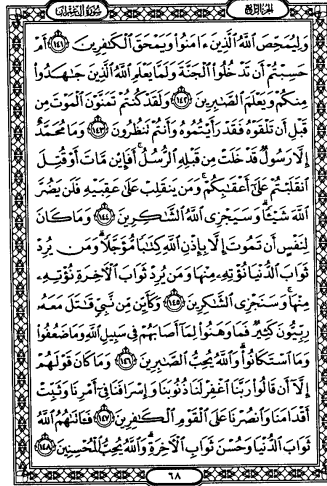 الجزء الرابع
سورة آل عمران
وَلِيُمَحِّصَ اللَّهُ الَّذِينَ ءَامَنُوا وَيَمْحَقَ الْكَٰفِرِينَ ١٤١ أَمْ
حَسِبْتُمْ أَن تَدْخُلُوا الْجَنَّةَ وَلَمَّا يَعْلَمِ اللَّهُ الَّذِينَ جَٰهَدُوا
مِنكُمْ وَيَعْلَمَ الصَّٰبِرِينَ ١٤٢ وَلَقَدْ كُنتُمْ تَمَنَّوْنَ الْمَوْتَ مِن
قَبْلِ أَن تَلْقَوْهُ فَقَدْ رَأَيْتُمُوهُ وَأَنتُمْ تَنظُرُونَ ١٤٣ وَمَا مُحَمَّدٌ
إِلَّا رَسُولٌ قَدْ خَلَتْ مِن قَبْلِهِ الرُّسُلُ أَفَإِيْن مَّاتَ أَوْ قُتِلَ
انقَلَبْتُمْ عَلَىٰ أَعْقَٰبِكُمْ وَمَن يَنقَلِبْ عَلَىٰ عَقِبَيْهِ فَلَن يَضُرَّ
اللَّهَ شَيْـًٔا وَسَيَجْزِى اللَّهُ الشَّٰكِرِينَ ١٤٤ وَمَا كَانَ
لِنَفْسٍ أَن تَمُوتَ إِلَّا بِإِذْنِ اللَّهِ كِتَٰبًا مُّؤَجَّلًا وَمَن يُرِدْ
ثَوَابَ الدُّنْيَا نُؤْتِهِ مِنْهَا وَمَن يُرِدْ ثَوَابَ الْآخِرَةِ نُؤْتِهِ
مِنْهَا وَسَنَجْزِى الشَّٰكِرِينَ ١٤٥ وَكَأَيِّن مِّن نَّبِىٍّ قَٰتَلَ مَعَهُ
رِبِّيُّونَ كَثِيرٌ فَمَا وَهَنُوا لِمَا أَصَابَهُمْ فِى سَبِيلِ اللَّهِ وَمَا ضَعُفُوا
وَمَا اسْتَكَانُوا وَاللَّهُ يُحِبُّ الصَّٰبِرِينَ ١٤٦ وَمَا كَانَ قَوْلَهُمْ
إِلَّا أَن قَالُوا رَبَّنَا اغْفِرْ لَنَا ذُنُوبَنَا وَإِسْرَافَنَا فِى أَمْرِنَا وَثَبِّتْ
أَقْدَامَنَا وَانصُرْنَا عَلَى الْقَوْمِ الْكَٰفِرِينَ ١٤٧ فَـَٔاتَىٰهُمُ اللَّهُ
ثَوَابَ الدُّنْيَا وَحُسْنَ ثَوَابِ الْآخِرَةِ وَاللَّهُ يُحِبُّ الْمُحْسِنِينَ ١٤٨
٦٨